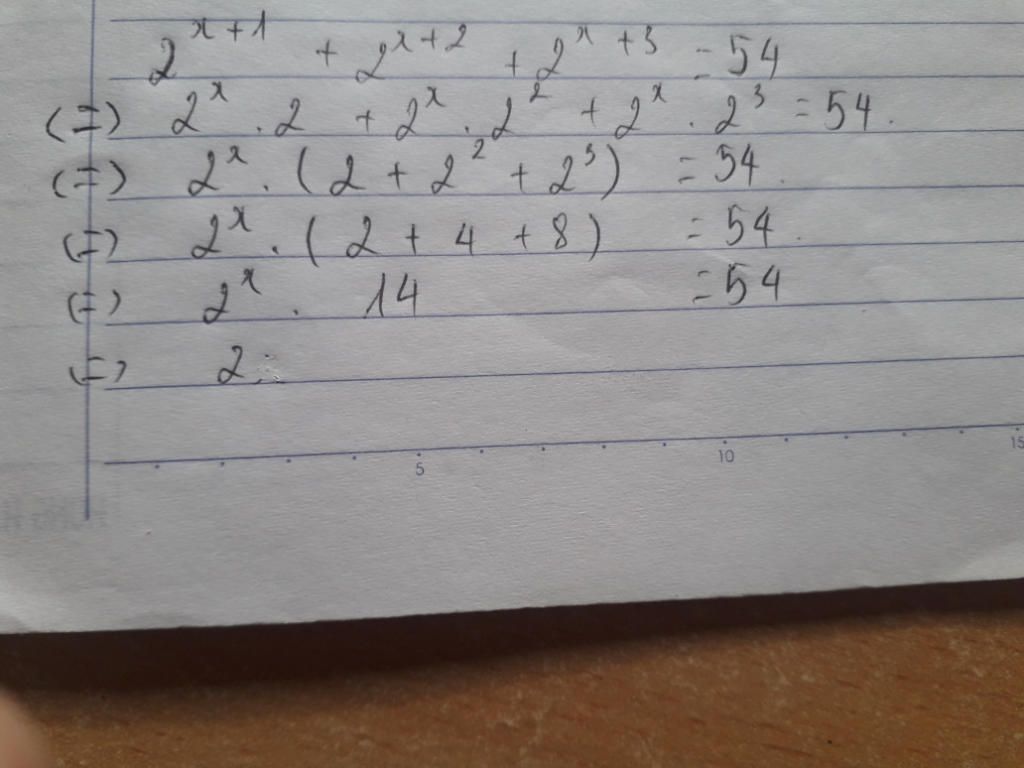 2^{x+1} + 2^{x+2} + 2^{x+3} = 54
(=) 2^x . 2 + 2^x . 2^2 + 2^x . 2^3 = 54.
(=) 2^x . (2 + 2^2 + 2^3) = 54.
(=) 2^x . (2 + 4 + 8) = 54.
(=) 2^x . 14 = 54
(=) 2
5 10 15